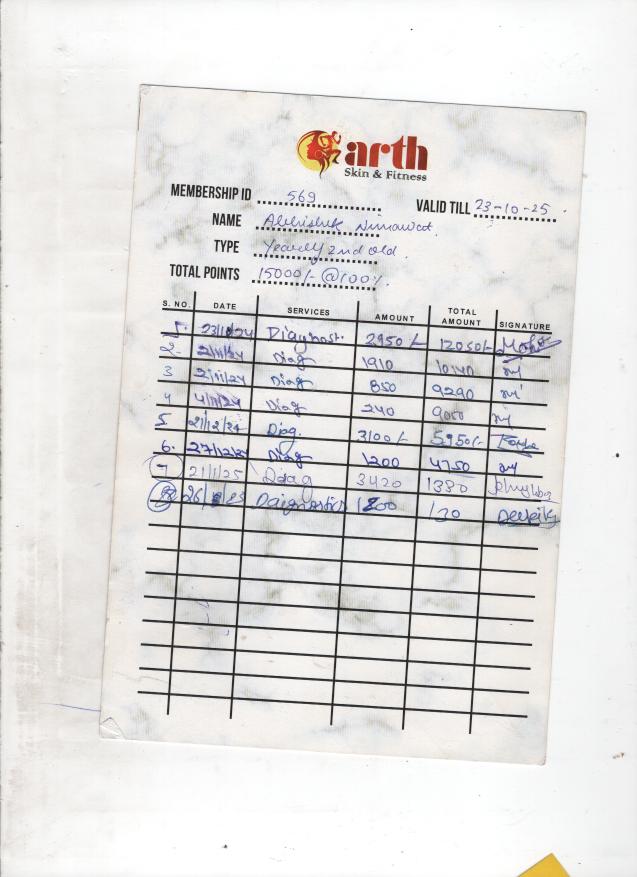 arth
Skin & Fitness
MEMBERSHIP ID 569
VALID TILL 23-10-25
NAME Abhishek
TYPE Yearly 2nd old
TOTAL POINTS 15000/- @100%
S. NO. DATE SERVICES AMOUNT TOTAL AMOUNT SIGNATURE
1. 23/11/24 Diagnost. 2950/- 12050/-
2. 2/11/24 Diag 1910 10140
3 2/11/24 Diag 850 9290
4 4/11/24 Diag 240 9050
5. 21/12/24 Diag. 3100/- 5950/-
6. 27/12/24 Diag 1200 4750
7 21/1/25 Ddag 3420 1330
8 Daignostics 1200 130